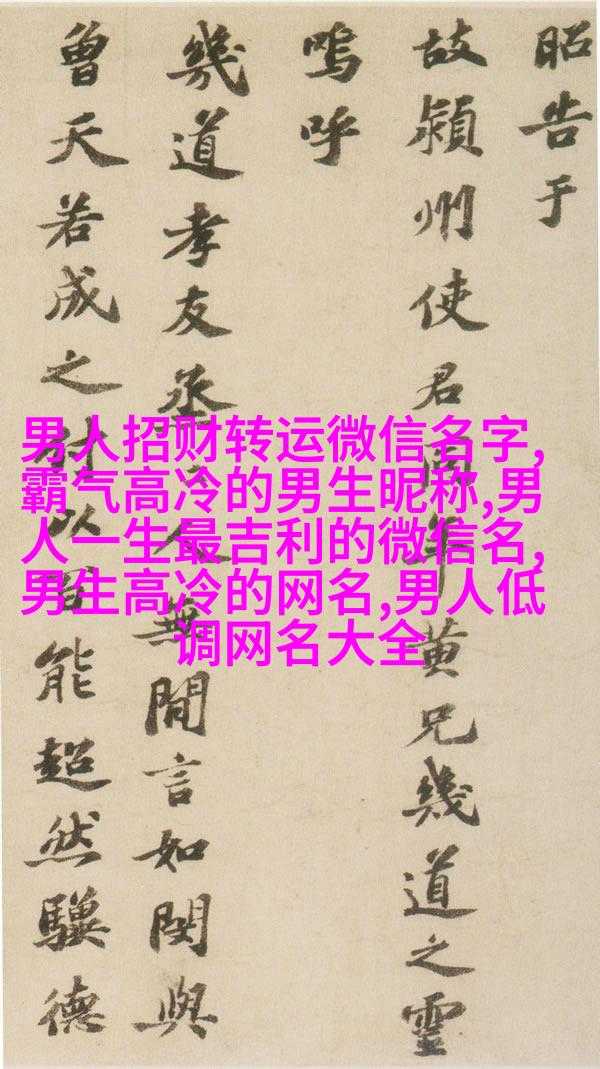 昭告于
故潁州使君同年黄兄幾道之靈
嗚呼
幾道孝友烝人無閒言如閔與
曾天若成之以能超然驥德
男人招财转运微信名字,
霸气高冷的男生昵称,男
人一生最吉利的微信名,
男生高冷的网名,男人低
调网名大全